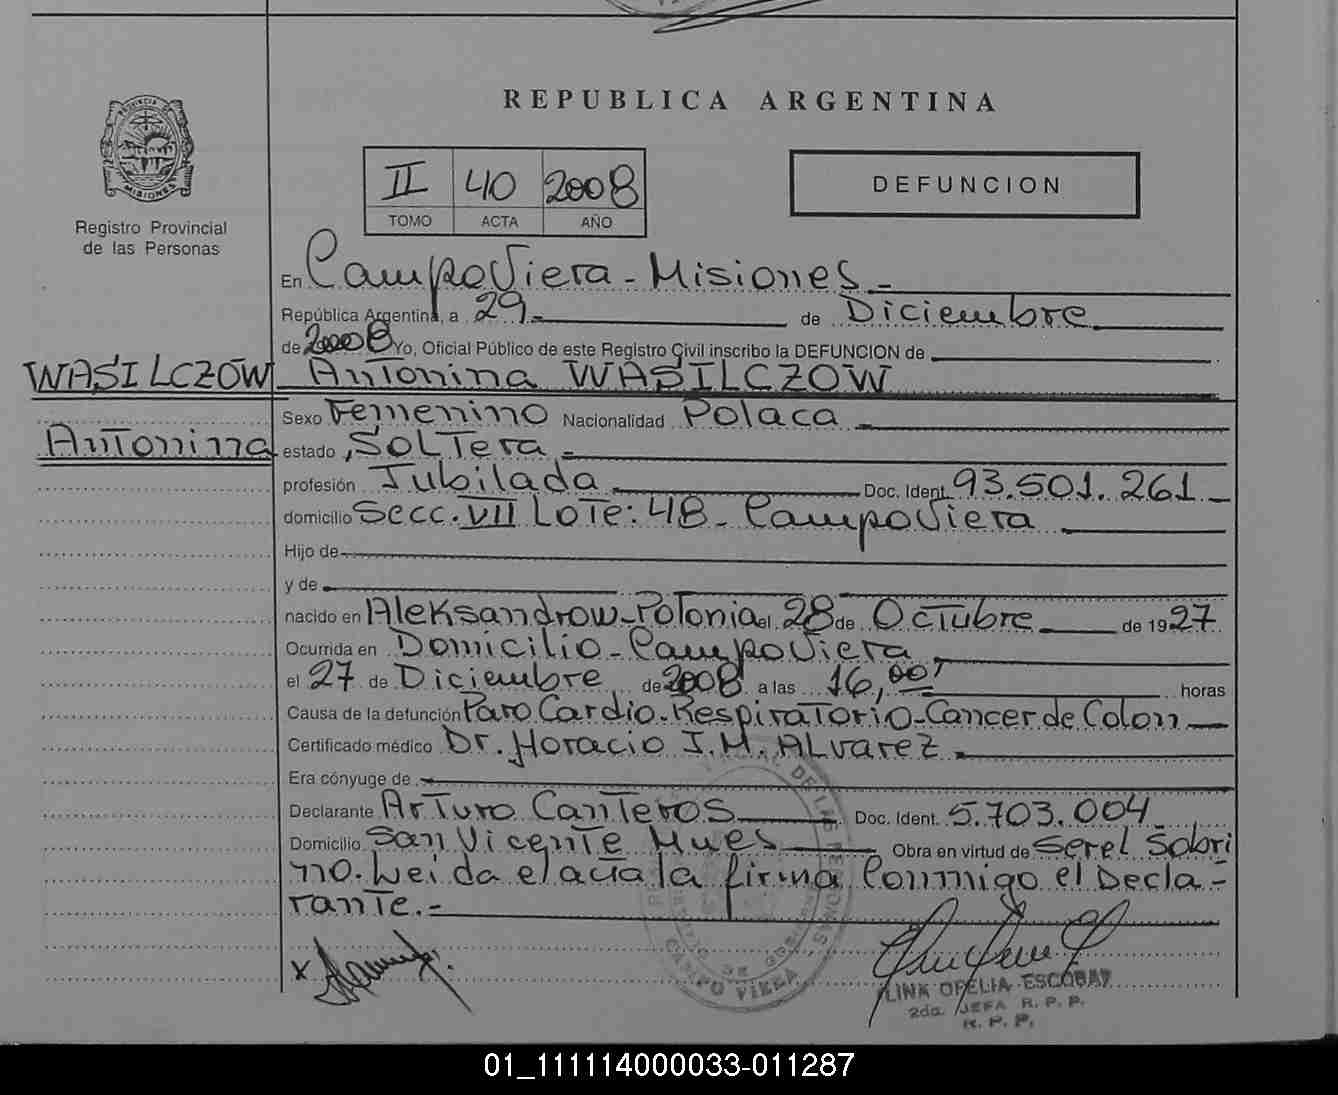 REPUBLICA ARGENTINA
PROVINCIA DE
MISIONES
Registro Provincial
de las Personas
II 40 2008
TOMO ACTA AÑO
DEFUNCION
En Campo Viera - Misiones -
República Argentina, a 29 - de Diciembre
de 2008 Yo, Oficial Público de este Registro Civil inscribo la DEFUNCION de
WASILCZOW Antonina WASILCZOW
Sexo Femenino Nacionalidad Polaca
Antonina estado, Soltera
profesión Jubilada Doc. Ident. 93.501.261
domicilio Secc. VII Lote: 48 - Campo Viera
Hijo de
y de
nacido en Aleksandrow - Polonia el 28 de Octubre de 1927
Ocurrida en Domicilio - Campo Viera
el 27 de Diciembre de 2008 a las 16,00' horas
Causa de la defunción Paro Cardio-Respiratorio - Cancer de Colon
Certificado médico Dr. Horacio I. M. Alvarez
Era cónyuge de
Declarante Arturo Canteros Doc. Ident. 5.703.004
Domicilio San Vicente Mnes Obra en virtud de Ser el Sobri
no. Leida el acta la firma Conmigo el Decla-
rante.-
CAMPO VIERA
LINK OFELIA ESCOBAR
2da. JEFA R. P. P.
R. P. P.
01_111114000033-011287